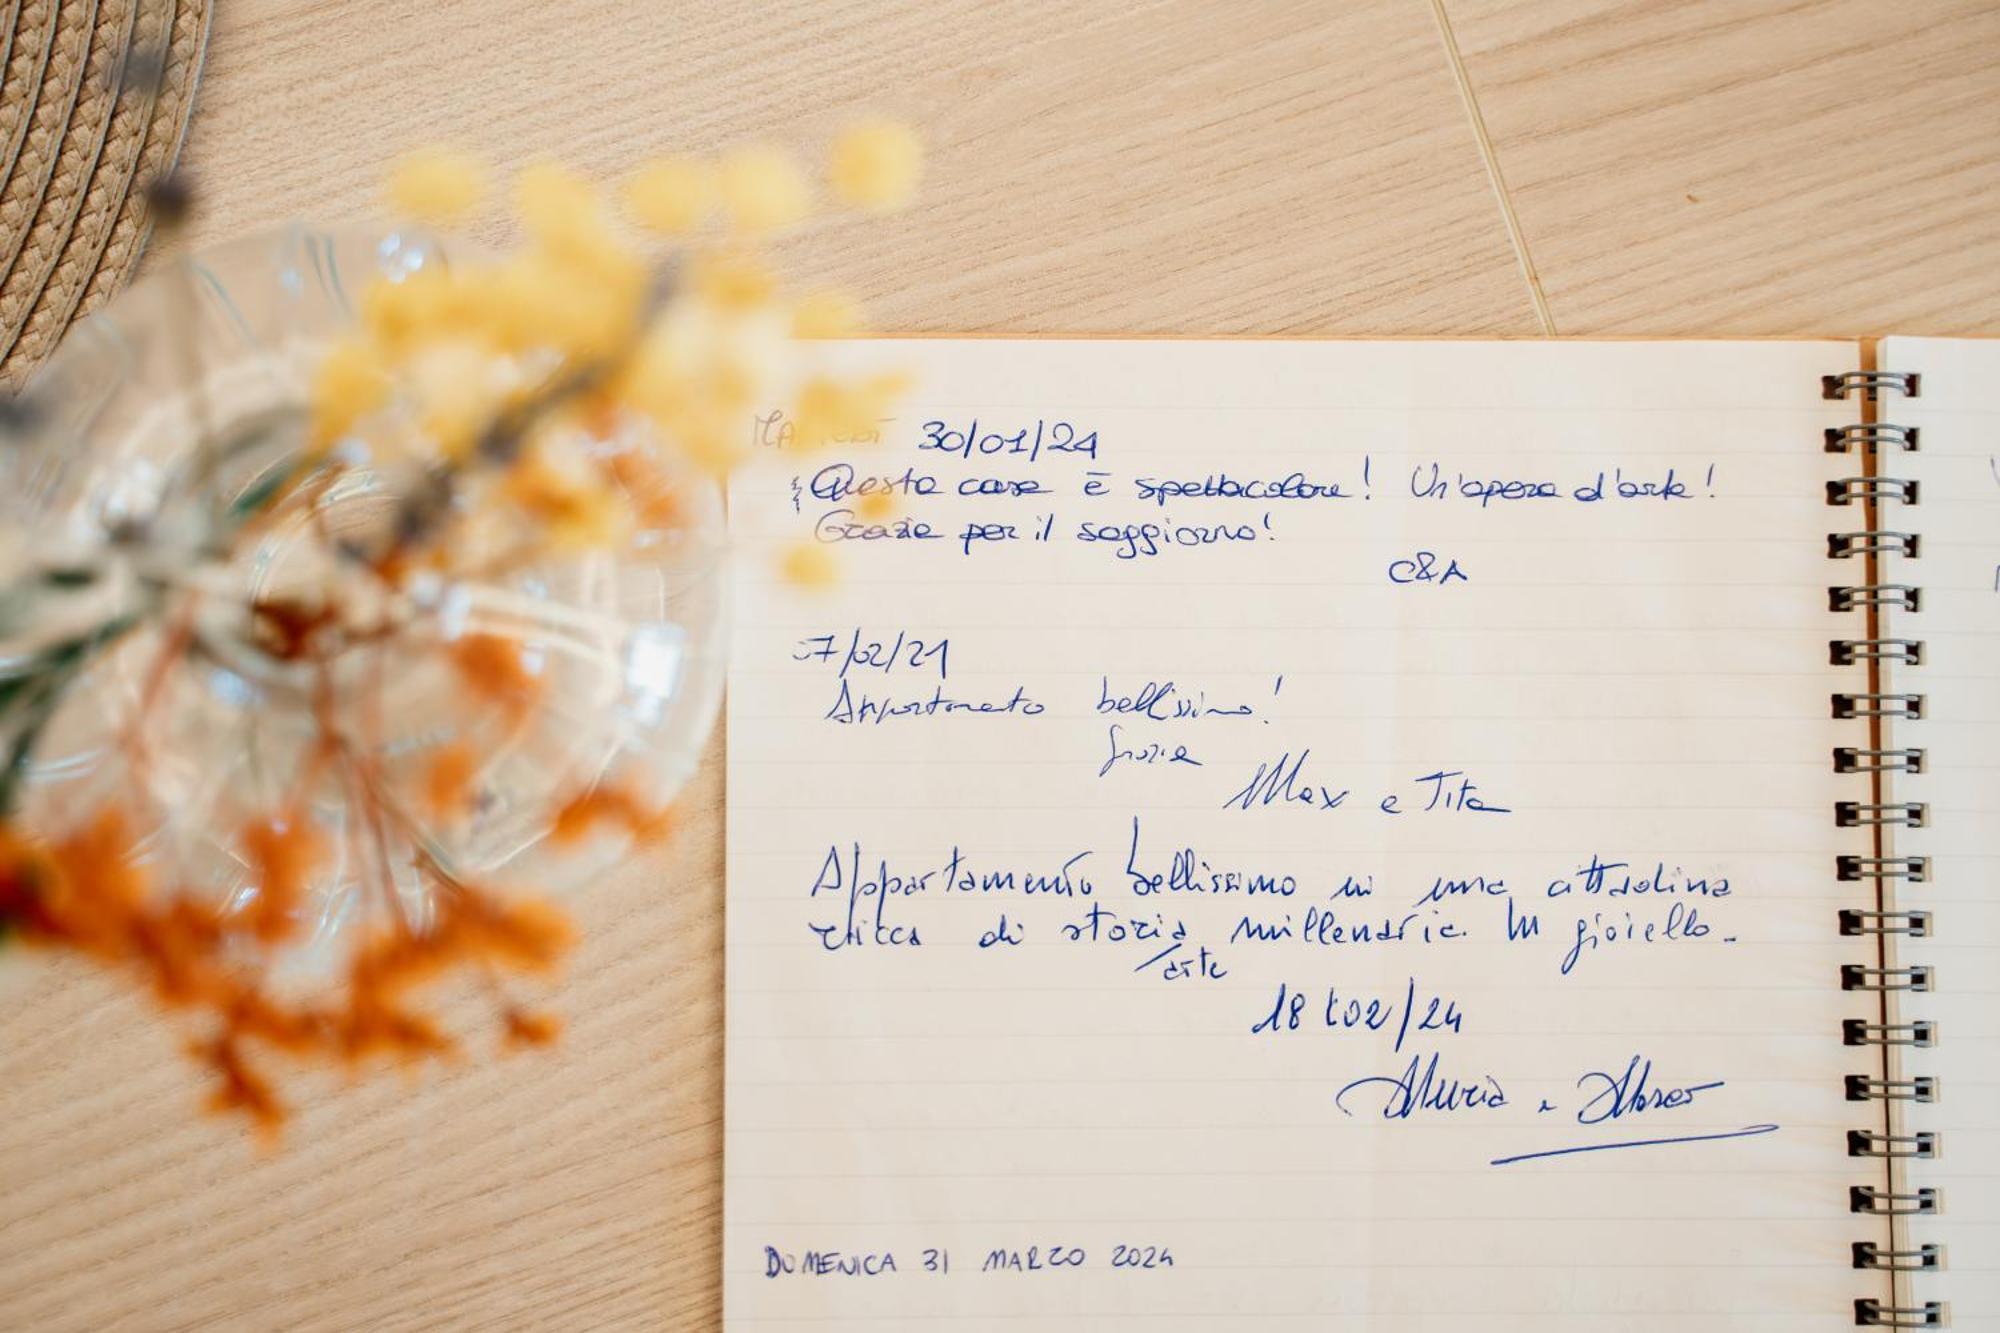 MARTEDÌ 30/01/24
Questa casa è spettacolare! Un'opera d'arte!
Grazie per il soggiorno!
C&A
07/02/21
Appartamento bellissimo!
Grazie
Max e Tita
Appartamento bellissimo in una cittadina
ricca di storia millenaria. Un gioiello.
/arte
18/02/24
DOMENICA 31 MARZO 2024